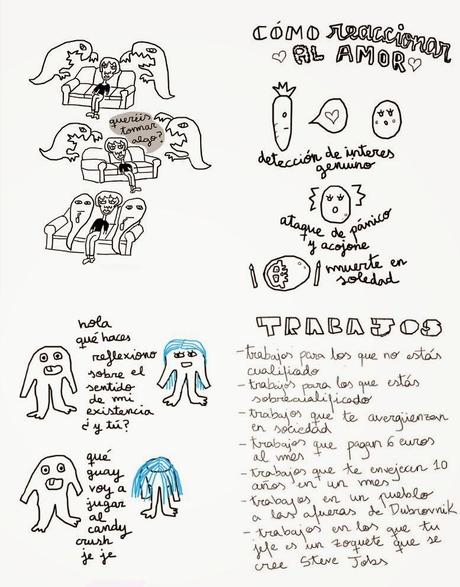 queréis
tomar
algo?
CÓMO reaccionar
AL AMOR
detección de interes
genuino
ataque de pánico
y acojone
muerte en
soledad
hola
qué haces
reflexiono
sobre el
sentido
de mi
existencia
¿y tú?
qué
guay
voy a
jugar
al
candy
crush
je je
TRABAJOS
-trabajos para los que no estás
cualificado
-trabajos para los que estás
sobrecualificado
-trabajos que te avergüenzan
en sociedad
-trabajos que pagan 6 euros
al mes
-trabajos que te envejecen 10
años en un mes
-trabajos en un pueblo
a las afueras de Dubrovnik
-trabajos en los que tu
jefe es un zoquete que se
cree Steve Jobs